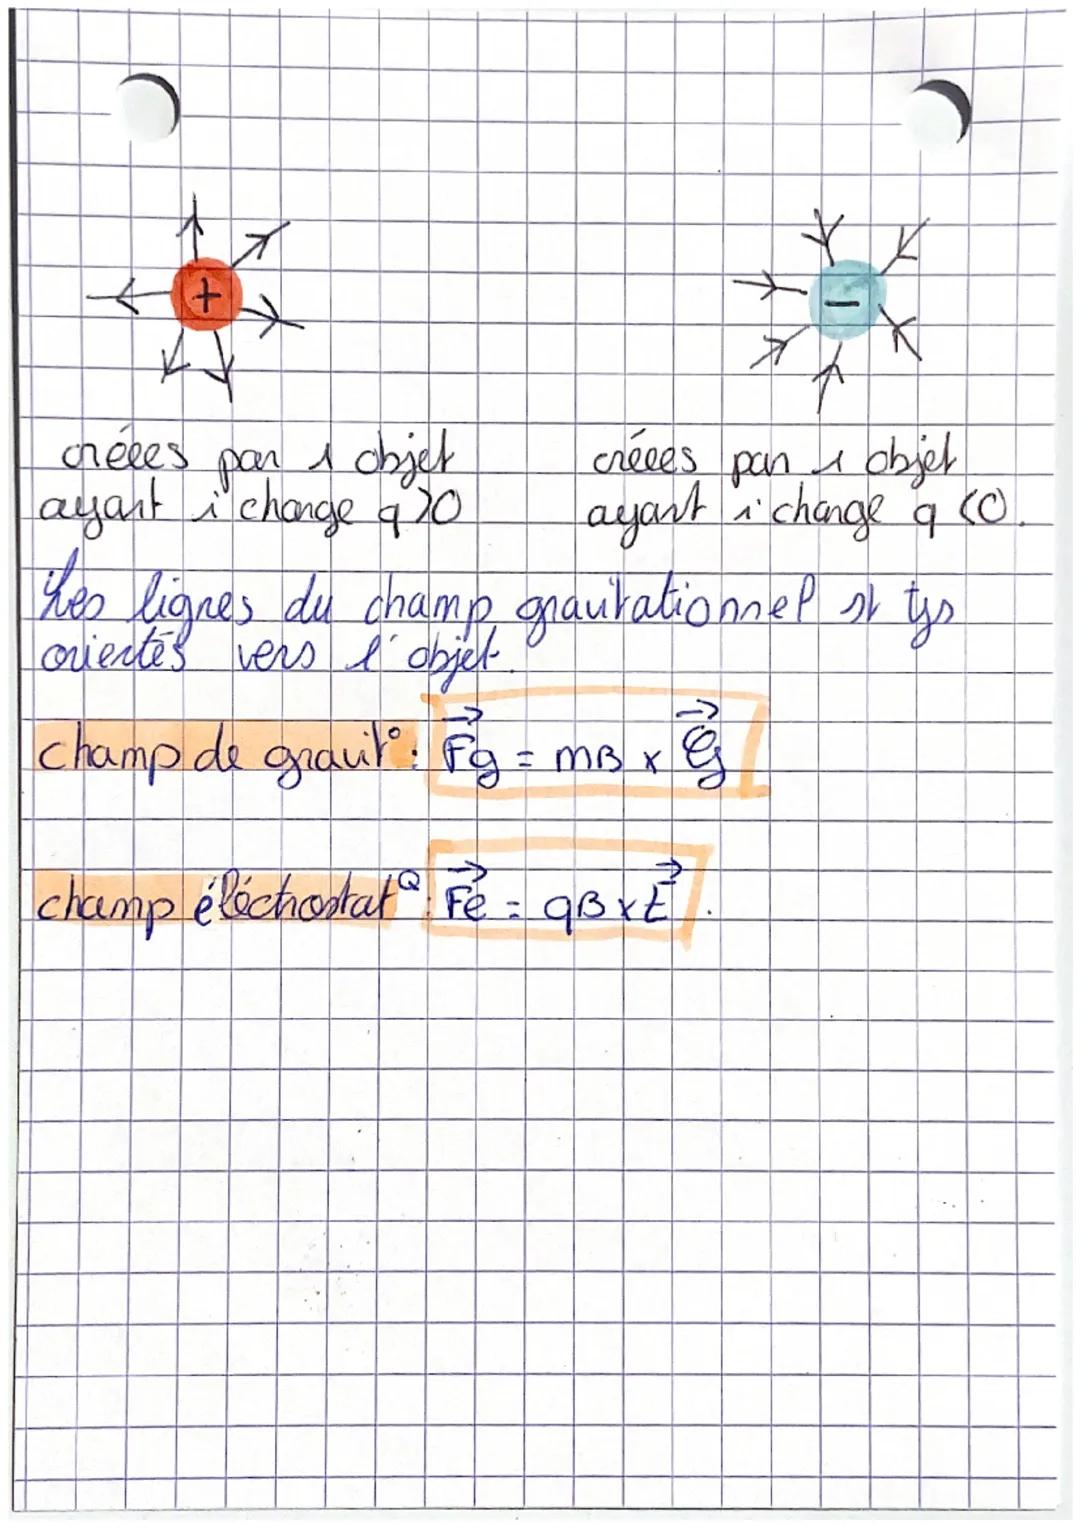 +
−
créées par 1 objet
ayant 1 charge q>0
créées par 1 objet
ayant 1 charge q<0.
Les lignes du champ gravitationnel st tjs
orientés vers l'objet.
champ de gravit° : Fg = mB x G
champ éléctrostatQ : Fe = qB x E.